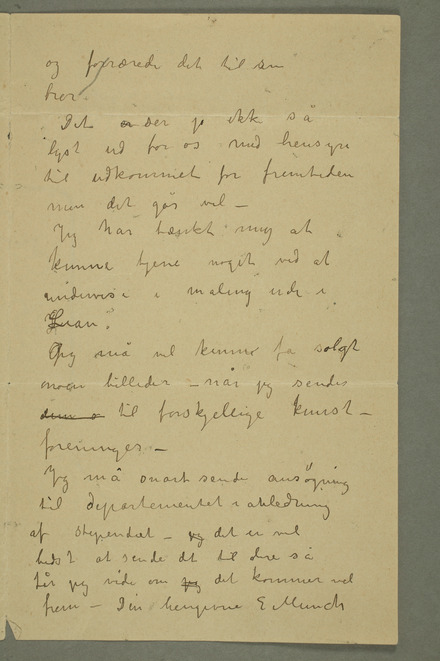 og forærede det til sin
bror.
Det ser jo ikk så
lyst ud for os med hensyn
til udkommet for fremtiden
men det går vel –
Jeg har tænkt mig at
kunne tjene noget ved at
undervise i maling ude i
Jeg må vel kunne få solgt
nogen billeder – når jeg sendes
til forskjellige kunst–
foreninger –
Jeg må snart sende ansøgning
til departementet i anledning
af stipendiet – jeg det er vel
bedst at sende dt til dere så
får jeg vide om jeg det kommer vel
frem – Din hengivne E Munch